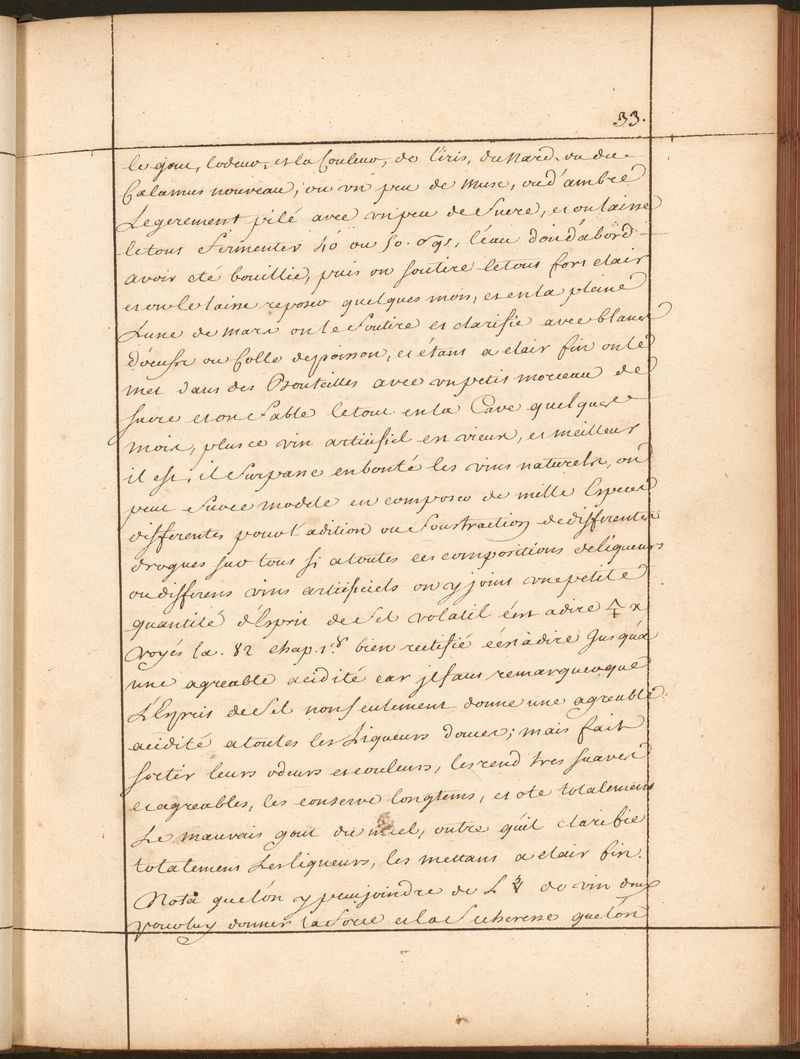 33.
le gout, lodeur, et la Couleur, de l'iris, du Nard, ou du
Calamus nouveau, ou un peu de Musc, ou d'ambre
Legerement pilé avec un peu de Sucre, et on laisse
le tout fermenter 40 ou 50. Jours, l'eau doit d'abord
avoir eté bouillie, puis on soutire le tout fort clair
et on le laisse reposer quelques mois, et en la pleine
Lune de mars on le Soutire et clarifie avec blancs
d'oeufs ou Colle de poisson, et étant a clair fin on le
met dans des Bouteilles avec un petit morceau de
sucre et on Sable le tout en la Cave quelques
mois, plus ce vin artificiel est vieux, et meilleur
il est, il Surpasse en bonté les vins naturels, on
peut Sur ce modele en composer de mille Especes
differentes pour l'adition ou Soustraction de differentes
drogues sur tous si a toutes ces compositions de liqueurs
ou differens vins artificiels on y joint une petite
quantité d'Esprit de Sel volatil c'est a dire
voyés la. 82 chap. 1.er bien rectifié c'est à dire Jusqu'a
une agreable acidité car jl faut remarquer que
L'Esprit de Sel non seulement donne une agreable
acidité a toutes les Liqueurs douces; mais fait
sortir leurs odeurs et couleurs, les rend tres suaves
et agreables, les conserve longtems, et ote totalement
Le mauvais gout du miel, outre qu'il clarifie
totalement Les liqueurs, les mettant a clair fin.
Nota que l'ón y peut joindre de L de vin doux
pour luy donner la Force et la Secheresse que l'ón